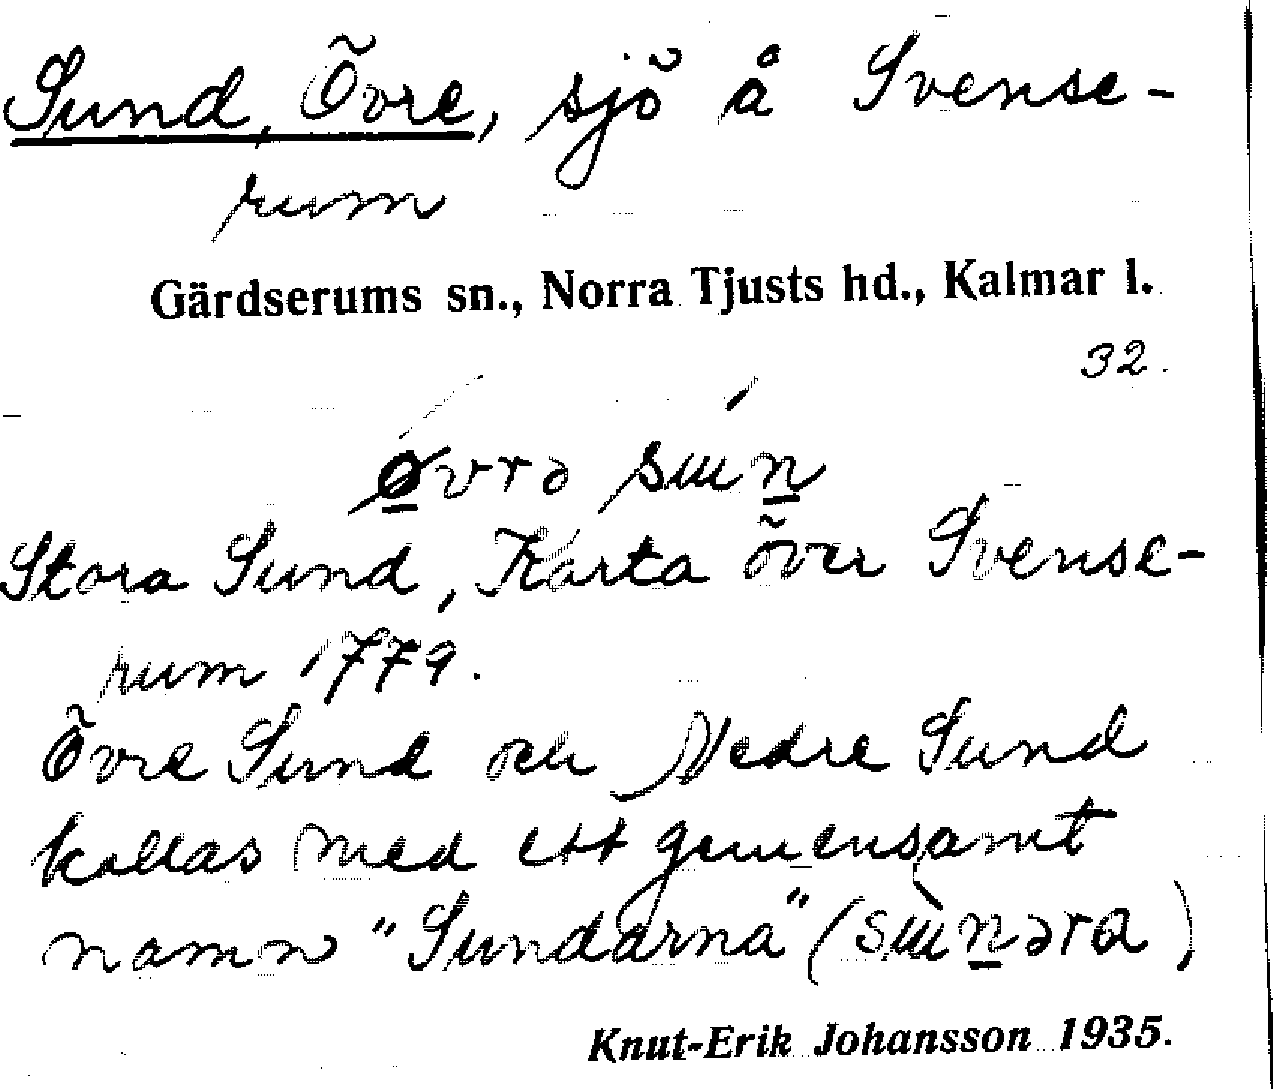 Sund, Övre, sjö å Svense-
rum
Gärdserums sn., Norra Tjusts hd., Kalmar l.
32.
Stora Sund, Karta över Svense-
rum 1779.
Övre Sund och Nedre Sund
kallas med ett gemensamt
namn "Sundarna"
Knut-Erik Johansson 1935.